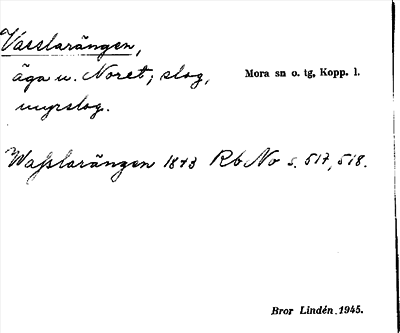 Vasslarängen,
äga u. Noret; slog, Mora sn o. tg, Kopp. l.
myrslog.
Wasslarängen 1873 Rb No s. 517, 518.
Bror Lindén. 1945.